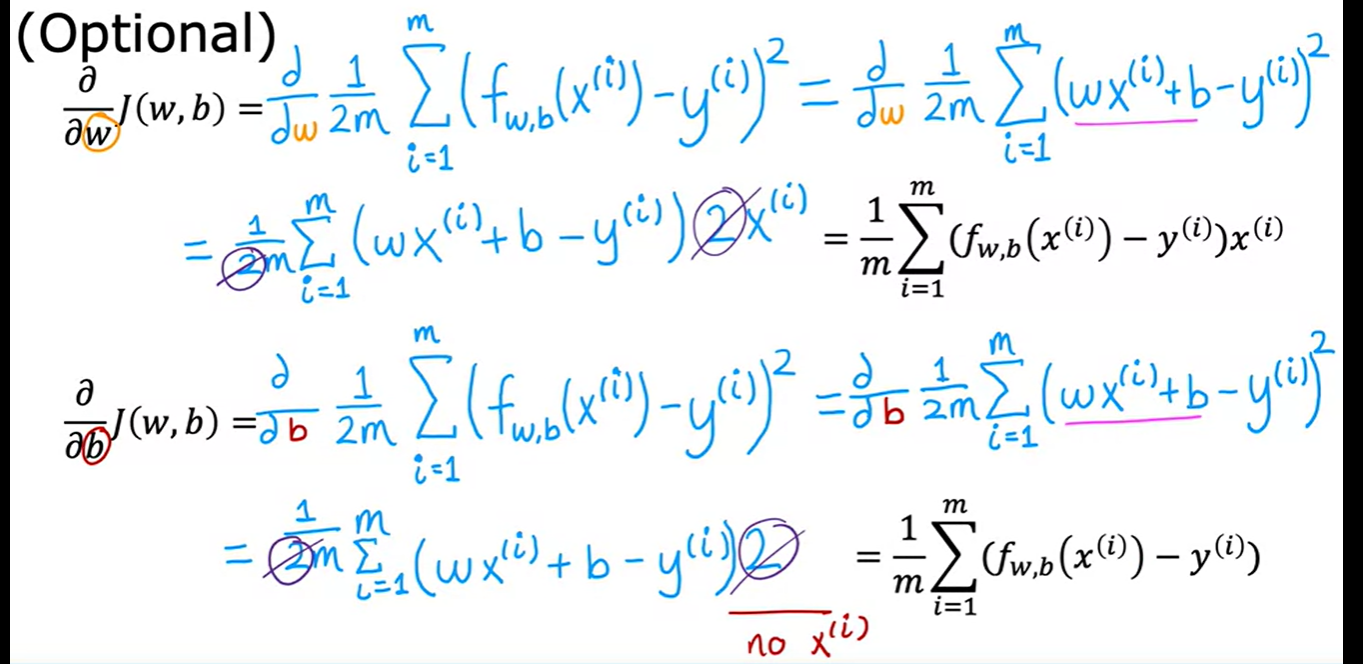 (Optional)
∂/∂w J(w, b) = d/dw 1/2m ∑_{i=1}^{m} (f_{w,b}(x^{(i)}) − y^{(i)})² = d/dw 1/2m ∑_{i=1}^{m} (wx^{(i)} + b − y^{(i)})²
= 1/2m ∑_{i=1}^{m} (wx^{(i)} + b − y^{(i)}) 2x^{(i)} = 1/m ∑_{i=1}^{m} (f_{w,b}(x^{(i)}) − y^{(i)})x^{(i)}
∂/∂b J(w, b) = ∂/∂b 1/2m ∑_{i=1}^{m} (f_{w,b}(x^{(i)}) − y^{(i)})² = ∂/∂b 1/2m ∑_{i=1}^{m} (wx^{(i)} + b − y^{(i)})²
= 1/2m ∑_{i=1}^{m} (wx^{(i)} + b − y^{(i)}) 2 = 1/m ∑_{i=1}^{m} (f_{w,b}(x^{(i)}) − y^{(i)})
no x^{(i)}